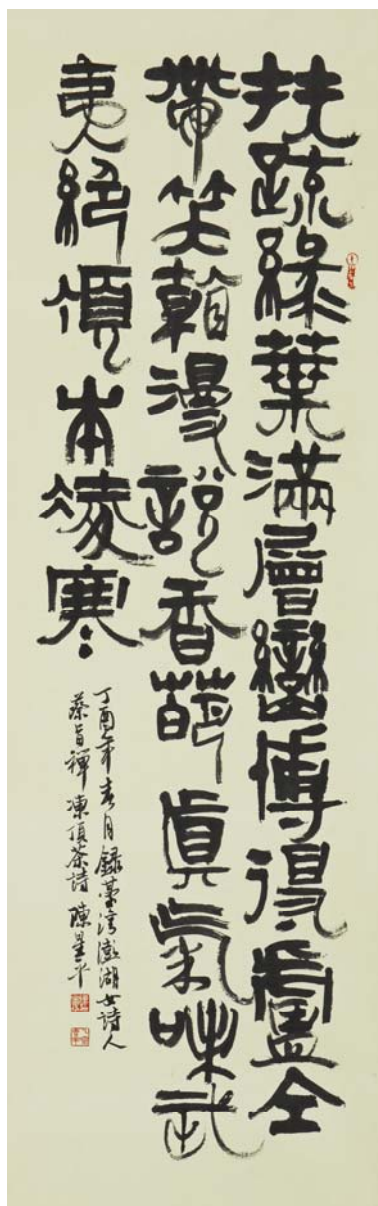 扶疏綠葉滿層巒博得盧仝
帶笑看漫說香葩真氣味武
夷絕頂本凌寒
丁酉年春月錄臺灣澎湖女詩人
蔡旨禪凍頂茶詩 陳星平